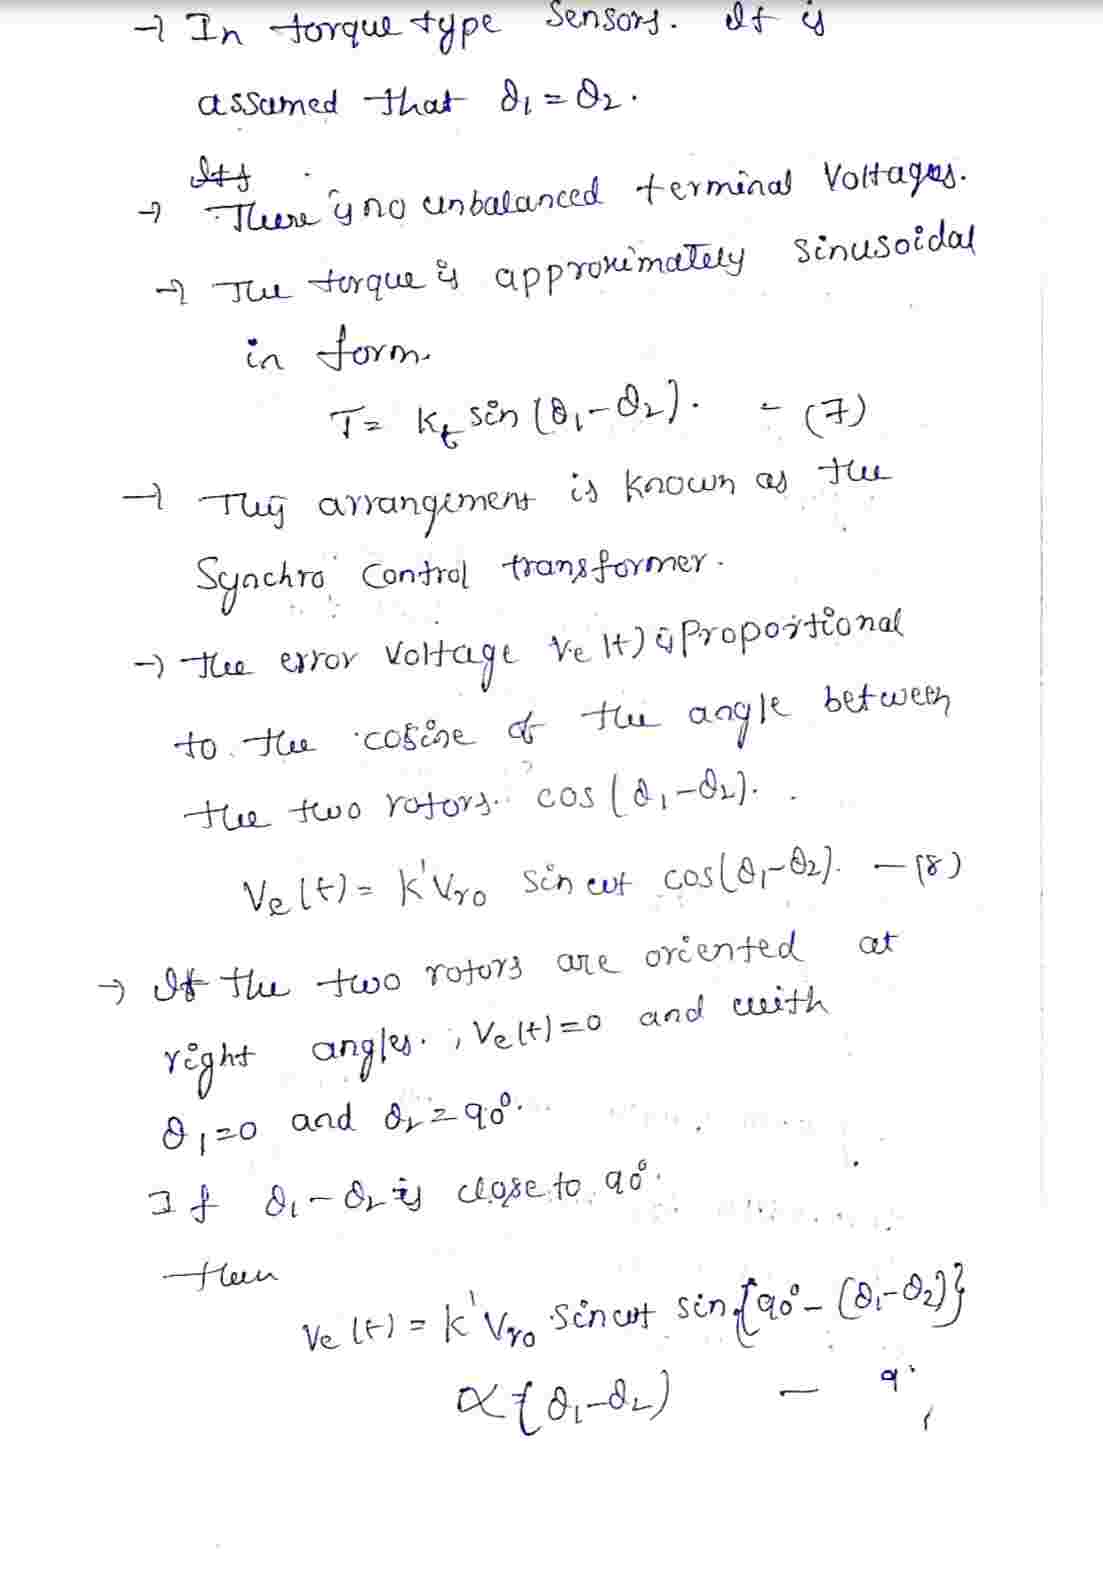 → In torque type Sensors. It is
assumed that θ1 = θ2.
→ There is no unbalanced terminal Voltages.
→ The torque is approximately sinusoidal
in form.
T = Kt sin (θ1-θ2). - (7)
→ This arrangement is known as the
Synchro Control transformer.
→ the error voltage Ve(t) is Proportional
to the cosine of the angle between
the two rotors. cos (θ1-θ2).
Ve(t) = K'Vro Sin ωt cos(θ1-θ2). - (8)
→ If the two rotors are oriented at
right angles., Ve(t)=0 and with
θ1=0 and θ2 = 90°.
If θ1-θ2 is close to 90°.
then
Ve (t) = K'Vro Sin ωt sin{90°-(θ1-θ2)}
∝ {θ1-θ2) - 9